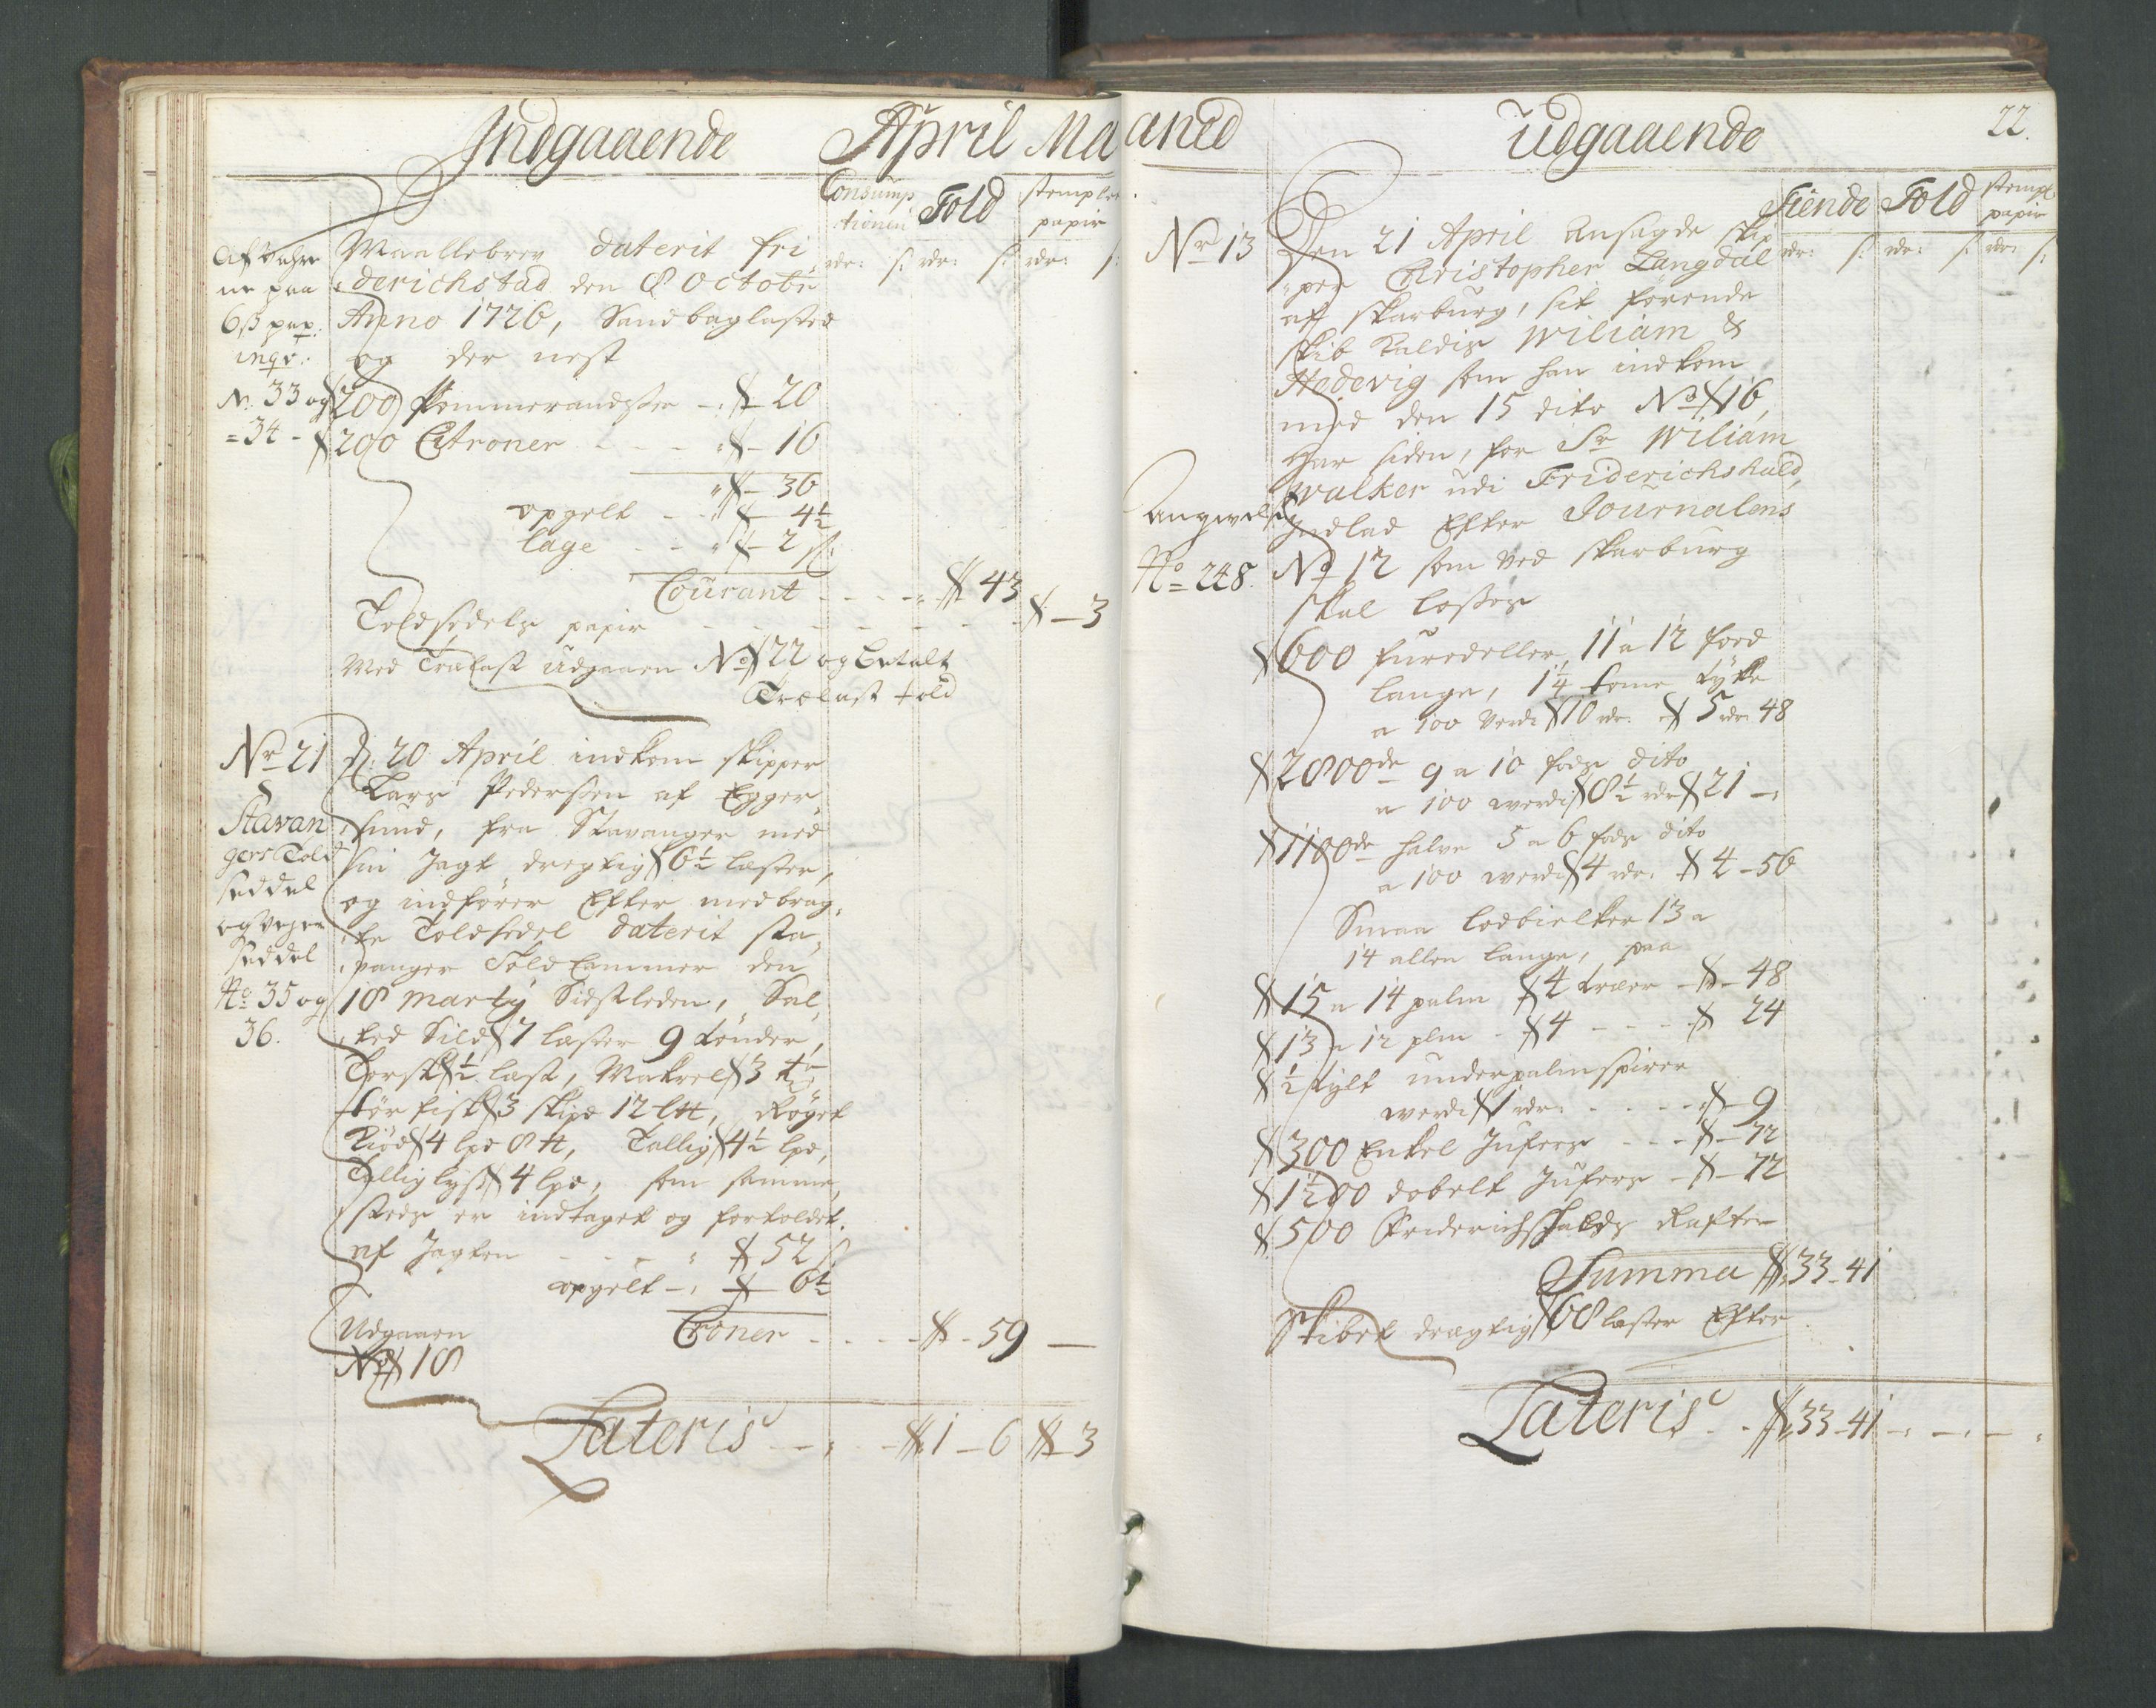 Indgaaende April Maaned Udgaaende 22.
Consump
tionen Told stemplet
papir
rdr: s: rdr: s: rdr: s:
Maallebrev daterit fri
derichstad den 8 octobr
Anno 1726, Sandbaglasted
og der nest
ne paa
6 s pap:
No. 33 og
34
200 Pommerandsser - 20
200 Citroner - 16
36
opgelt - 4½
lage - 2 s
Courant - 43
Toldsedels papir - 3
Med Trælast udgaaen No 22 og betalt
Trælast told
Nr 21
Stavan
gers Told
seddel
og vejer
seddel
No 35 og
36.
D: 20 April indkom skipper
Lars Pedersen af Egger
sund, fra Stavanger med
sin Jagt dregtig 6½ lester,
og indfører Efter medbrag
te Toldsedel daterit sta
vanger Told Cammer den
18 marty Sidstleden, Sal
ted Sild 7 lester 9 tønder,
Torsk ½ lest, Makrel 3 tr
tør fisk 3 skipd 12 ltt, Røget
Kiød 4 lpd 8 tt, Tallig 4½ lpd,
Tallig lyss 4 lpd, som samme
steds er indtaget og fortoldet.
af Jagten - 52 s
opgelt - 6½
Croner - 59 -
Udgaaen
No 18
Lateris - 1 - 6 3
Tiende Told stempl:
papir
rdr: s: rdr: s: rdr: s:
Nr 13
Den 21 April Ansagde skip
per Christopher Langdal
af skarburg, sit førende
skib kaldis Wiliam &
Hedevig som han indkom
med den 15 dito No 16,
har siden, for Sr Wiliam
Walker udi Friderichshald,
Indlad Efter Journalens
No 12 som ved skarburg
skal losses
Angivelse
No 248.
600 furedeller 11 a 12 foed
lange, 1¼ tome tykke
a 100 verdi 10 rdr: 5 rdr: 48
2800 de 9 a 10 fods dito
a 100 werdi 8½ rdr 21 -
1100 de halve 5 a 6 fods dito
a 100 werdi 4 rdr: 4 - 56
Smaa lodbielker 13 a
14 allen lange, paa
15 a 14 palm 4 træer - 48
13 a 12 plm - 4 - 24
½ tylt underpalmspirer
werdi 1 rdr: - 9
300 Enkel Jufers - 72
1200 dobelt Jufers - 72
500 Friderichshalds Rafter
Summa 33 - 41
Skibet drægtig 68 lester Efter
Lateris - 33 - 41 - - -